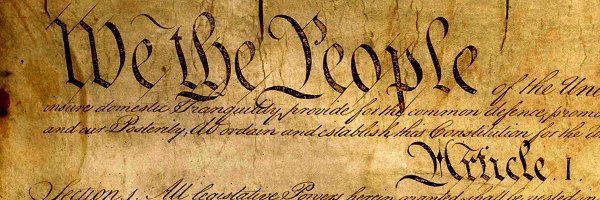 We the People of the Uni
insure domestic Tranquility, provide for the common defence, promo
and our Posterity, do ordain and establish this Constitution for the
Article. I.
Section 1. All legislative Powers herein granted shall be vested in